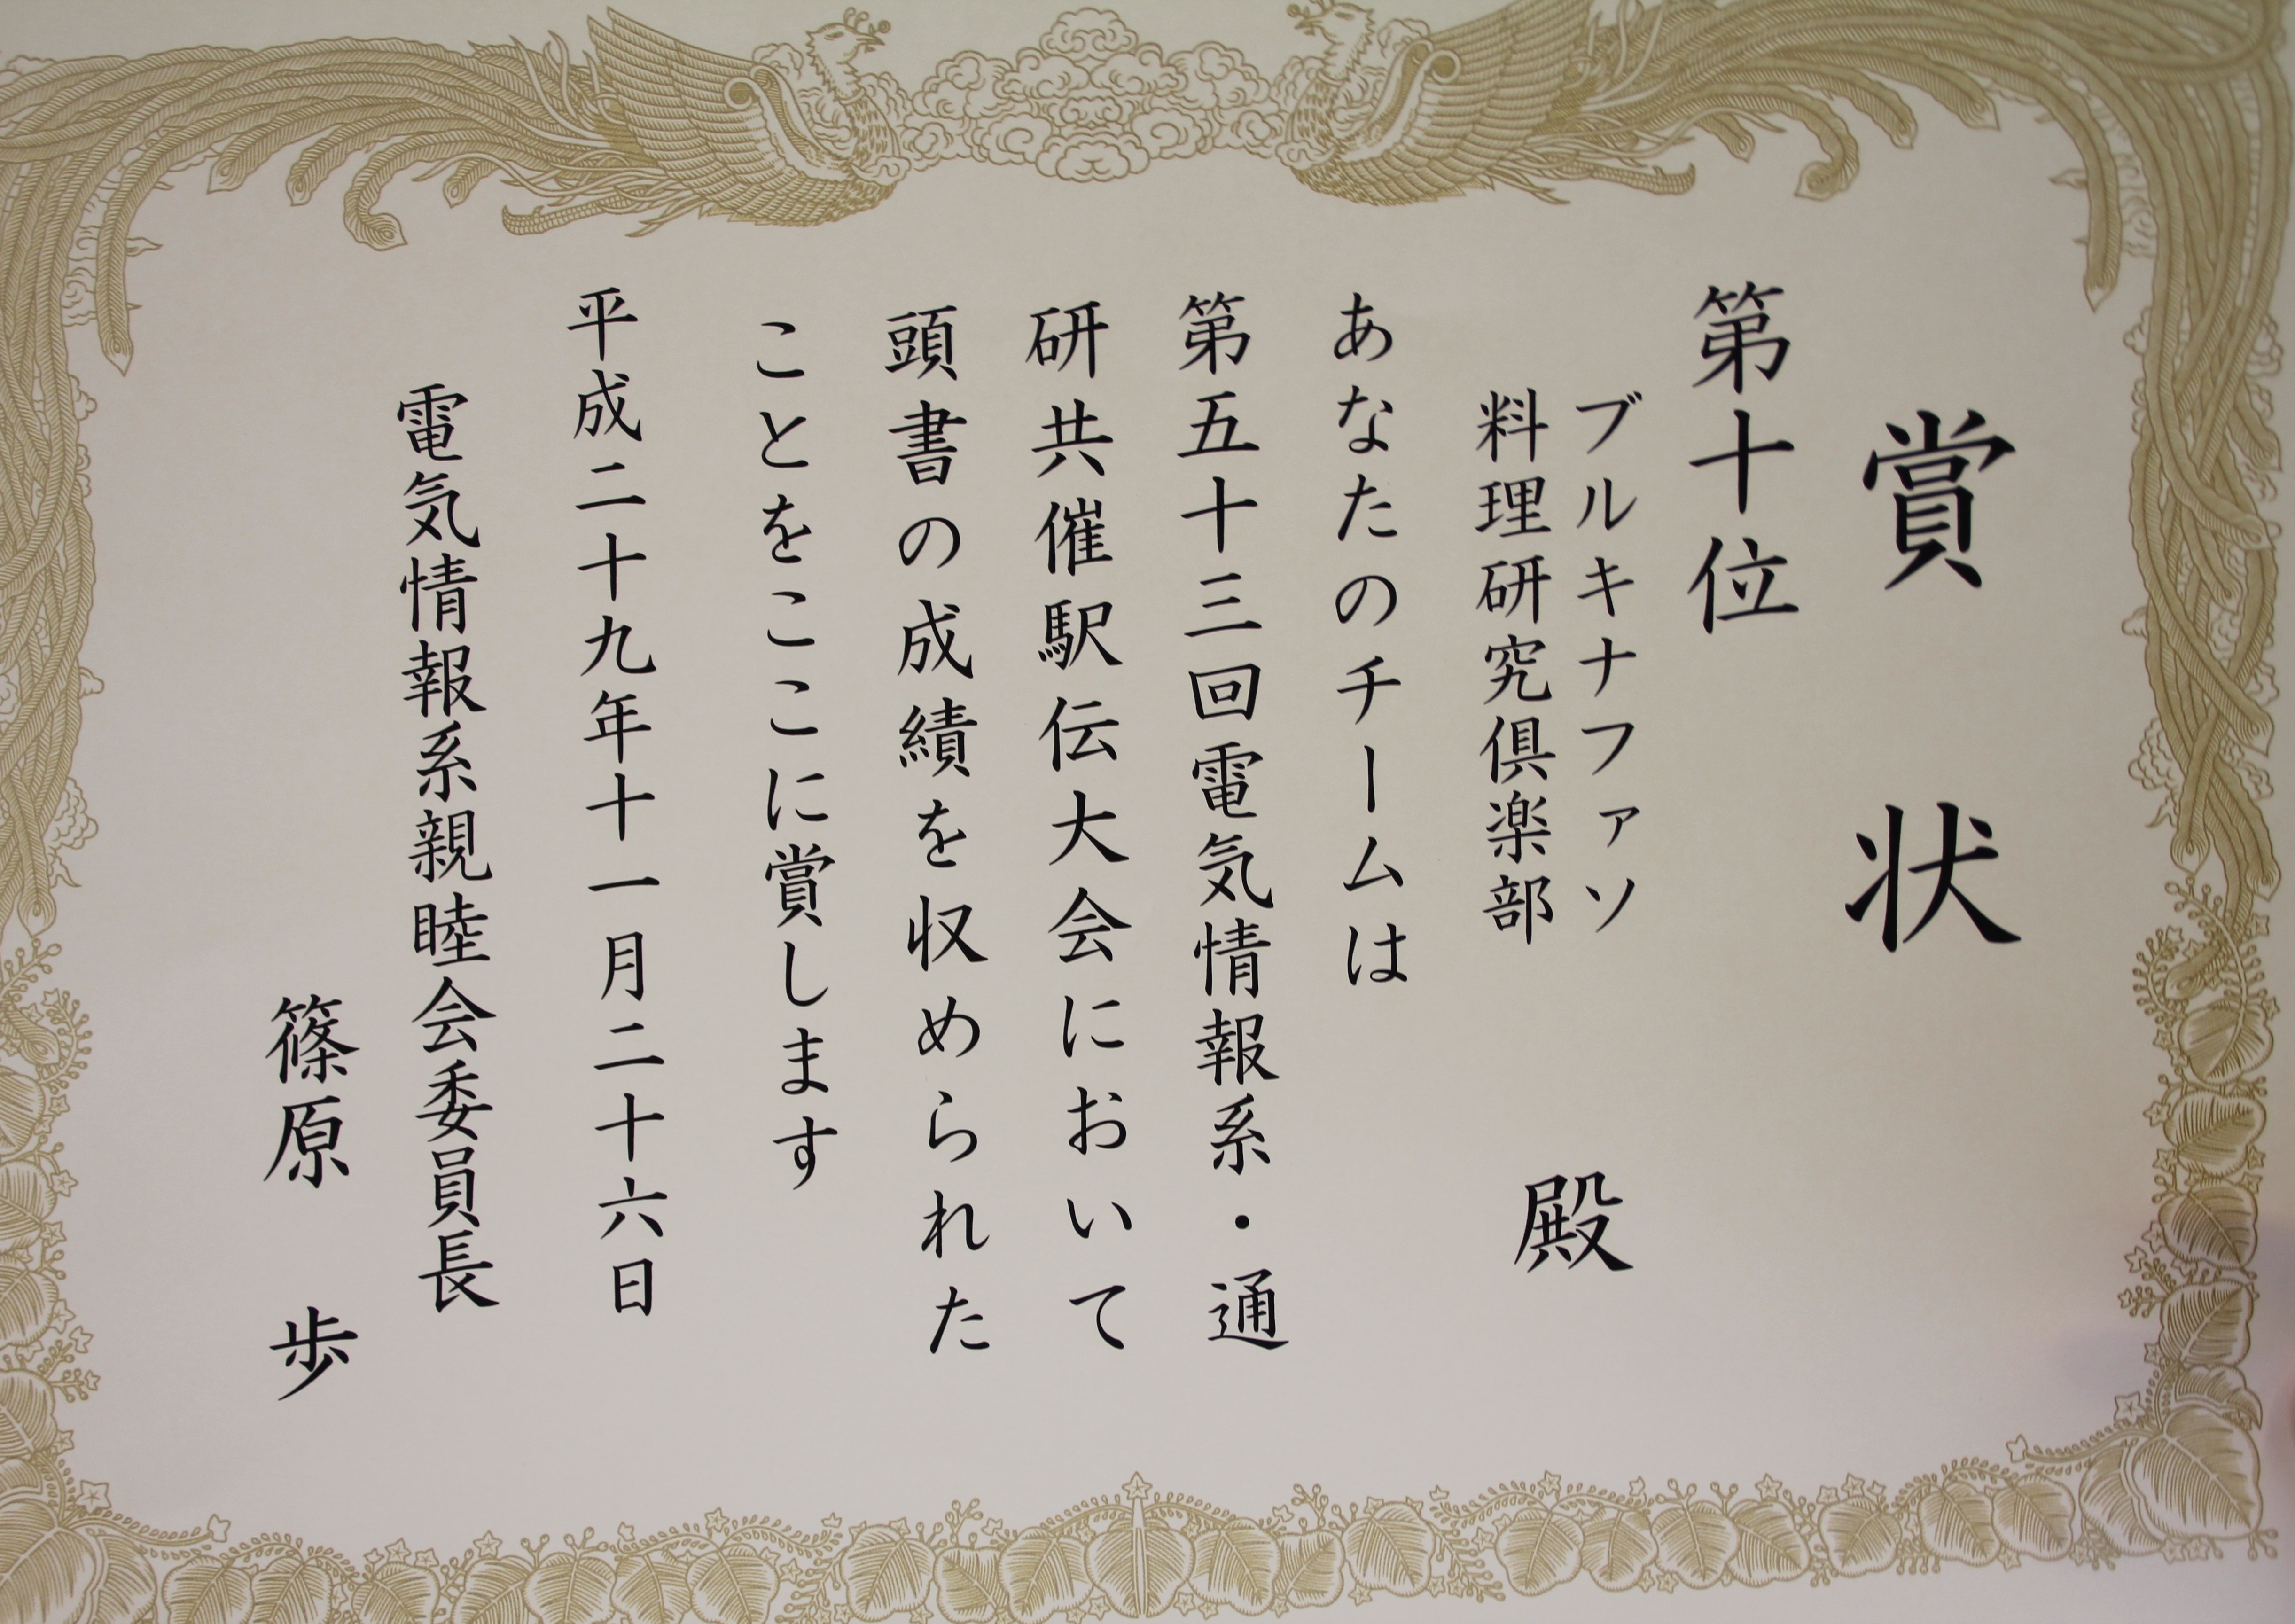 賞状
第十位
ブルキナファソ
料理研究倶楽部
殿
あなたのチームは
第五十三回電気情報系・通
研共催駅伝大会において
頭書の成績を収められた
ことをここに賞します
平成二十九年十一月二十六日
電気情報系親睦会委員長
篠原 歩